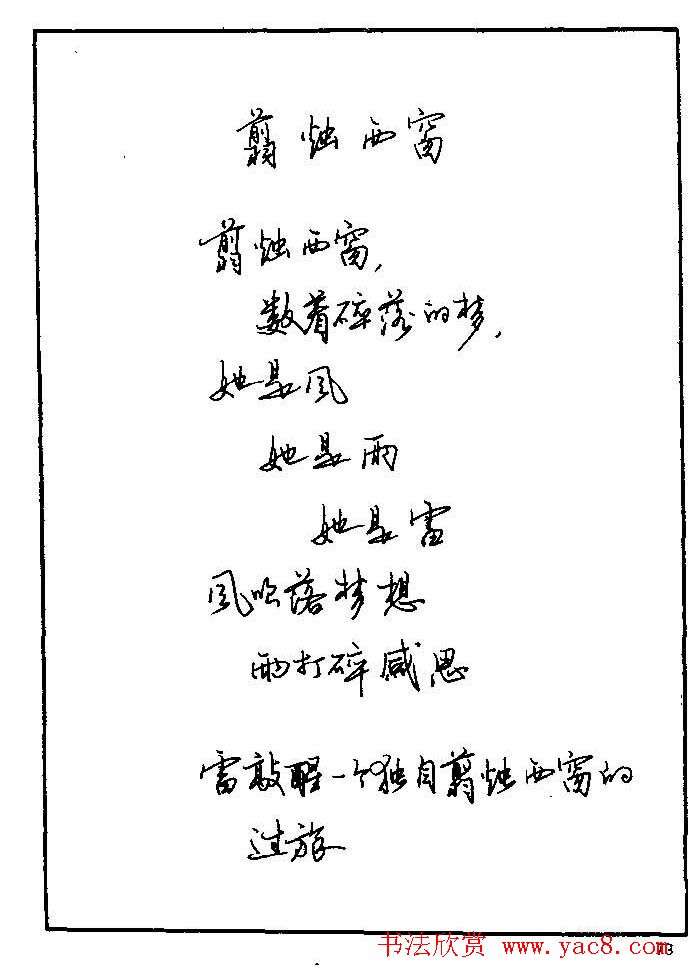 翦烛西窗
翦烛西窗,
数着碎落的梦,
她是风
她是雨
她是雷
风吹落梦想
雨打碎感思
雷敲醒一个独自翦烛西窗的
过旅
书法欣赏 www.yac8.com